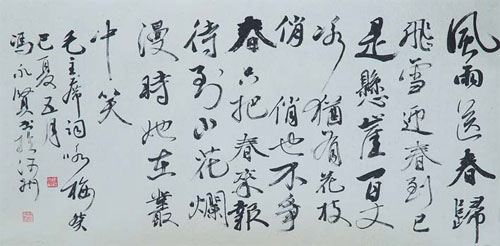 風雨送春歸
飛雪迎春到已
是懸崖百丈
冰猶有花枝
俏俏也不爭
春只把春來報
待到山花爛
漫時她在叢
中笑
毛主席詞咏梅癸
巳夏五月
馮永賢书於